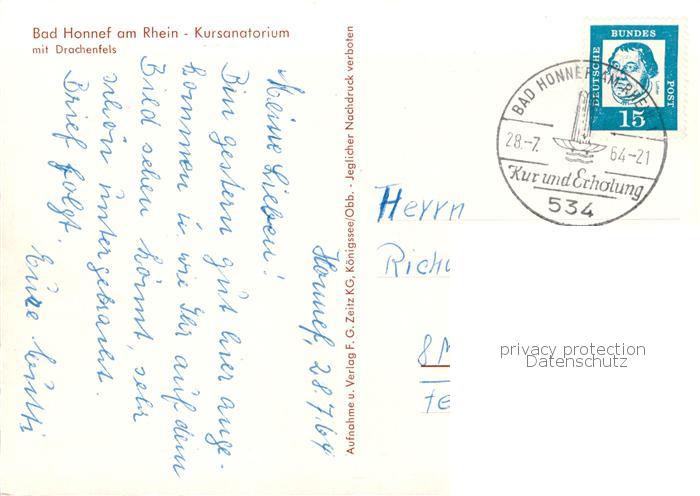 Bad Honnef am Rhein - Kursanatorium
mit Drachenfels
Honnef, 28.7.64
Meine Lieben!
Bin gestern gut hier ange-
kommen u. wie Ihr auf dem
Bild sehen könnt, sehr
schön untergebracht.
Brief folgt.
Eure Mutti
Aufnahme u. Verlag F. G. Zeitz KG, Königssee/Obb. - Jeglicher Nachdruck verboten
DEUTSCHE BUNDES POST
15
BAD HONNEF AM RHEIN
28.-7. 64-21
Kur und Erholung
534
Herrn
Rich
8M
privacy protection
Datenschutz